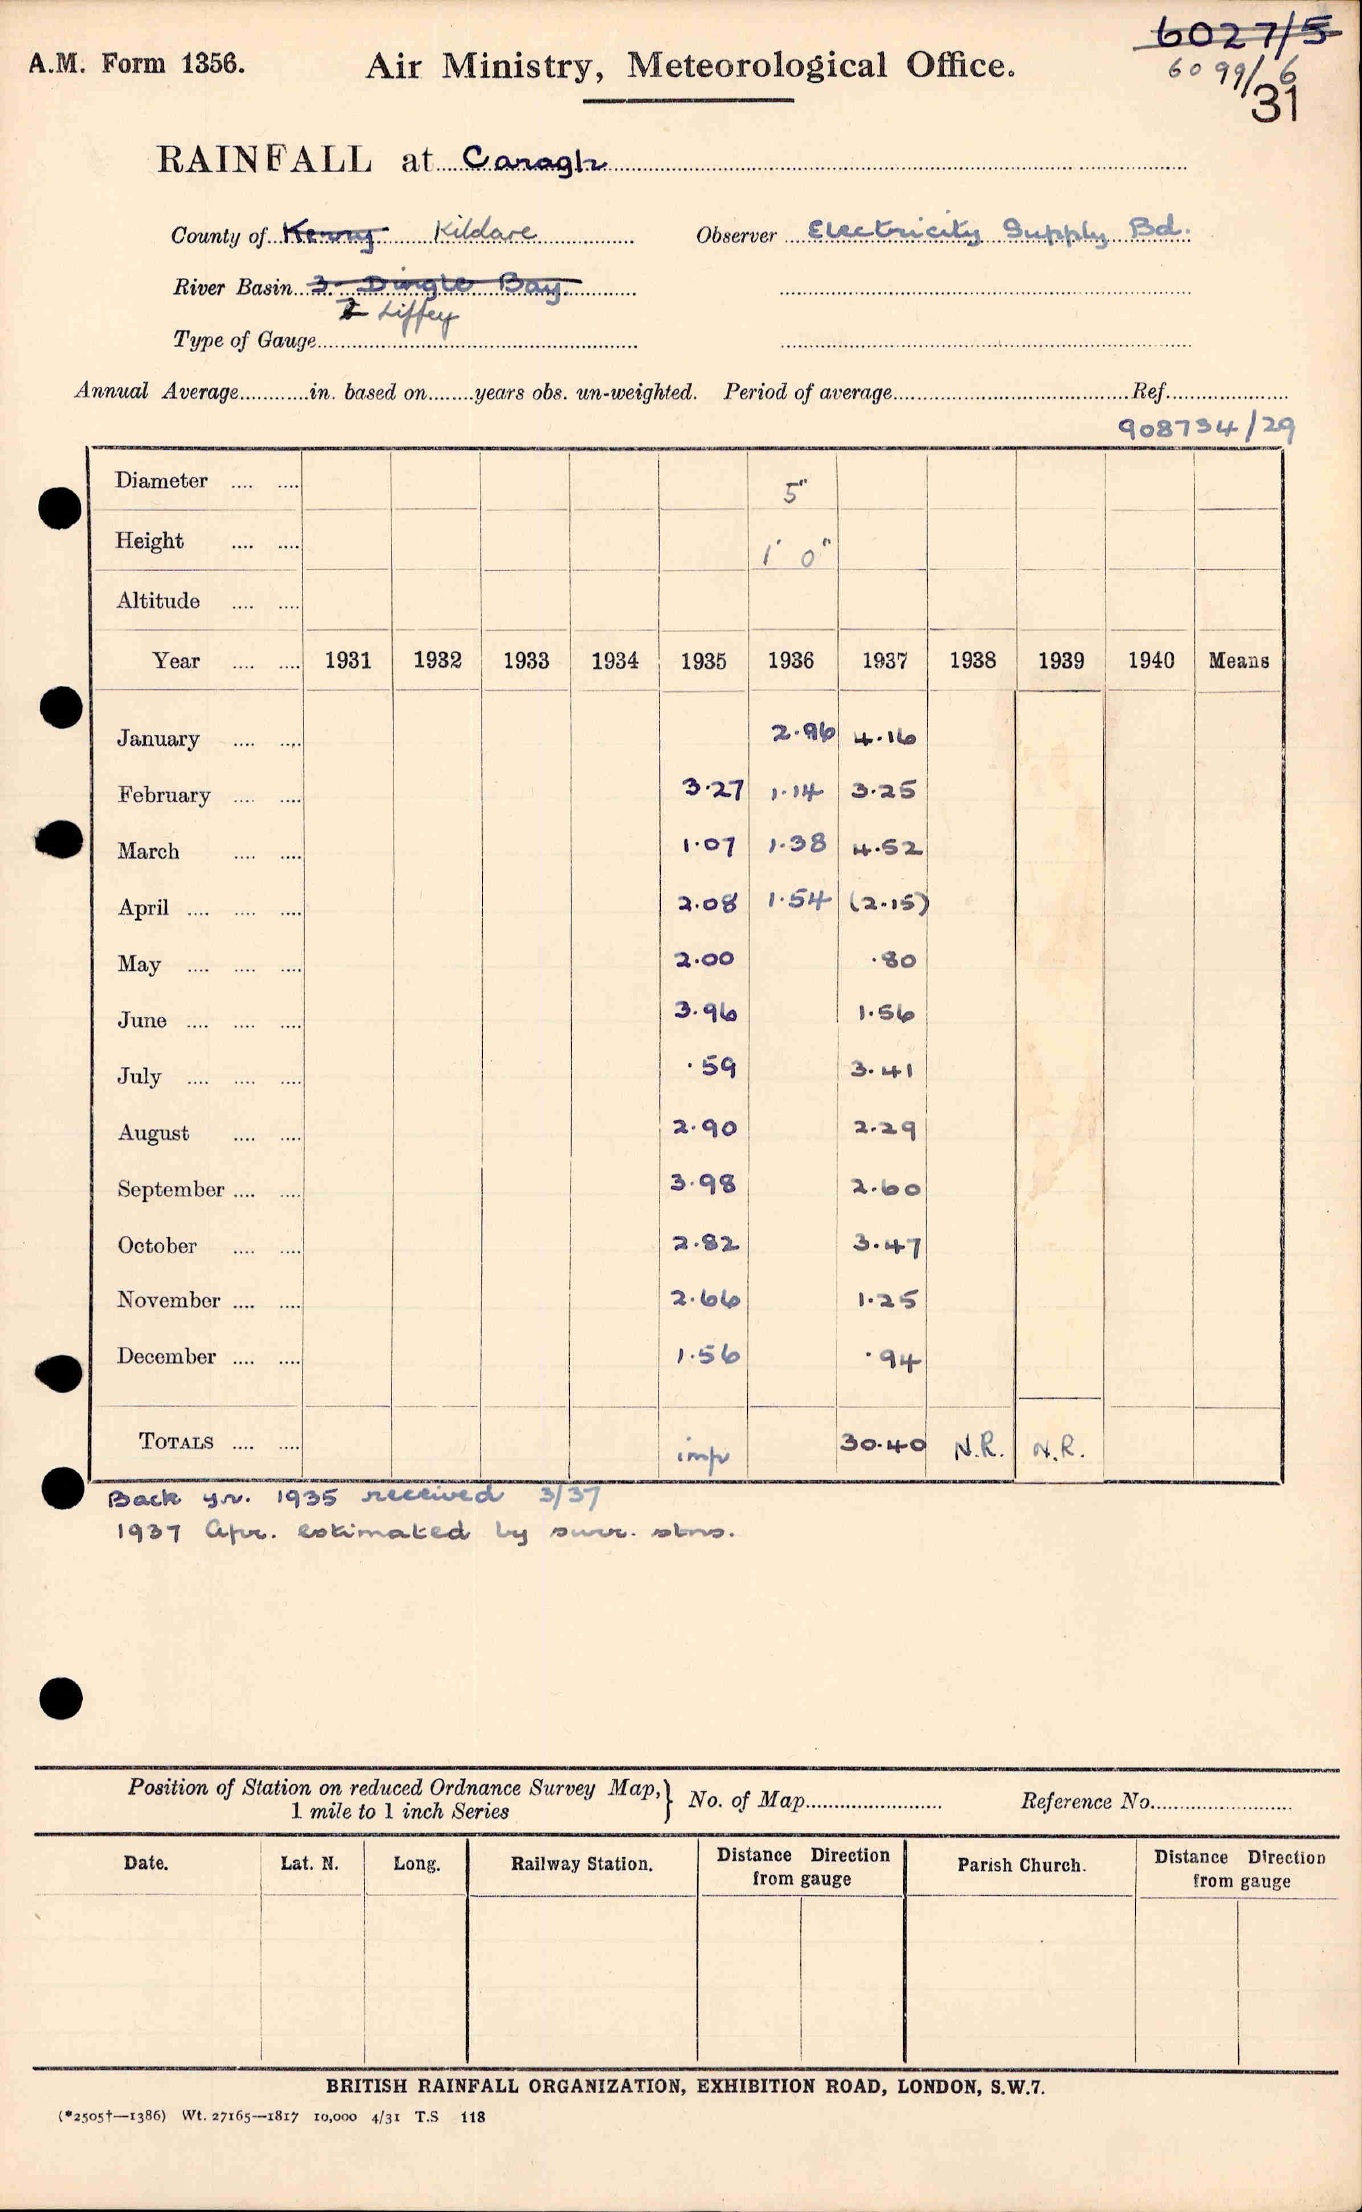 6027/5
A.M. Form 1356. Air Ministry, Meteorological Office.
6099/6
31
RAINFALL at Caragh
County of Kerry Kildare Observer Electricity Supply Bd.
River Basin 3. Dingle Bay.
2 Liffey
Type of Gauge
Annual Average............in. based on........years obs. un-weighted. Period of average............Ref............
908734/29
Diameter .... .... 5"
Height .... .... 1' 0"
Altitude .... ....
Year .... .... 1931 1932 1933 1934 1935 1936 1937 1938 1939 1940 Means
January .... .... 2.96 4.16
February .... .... 3.27 1.14 3.25
March .... .... 1.07 1.38 4.52
April .... .... .... 2.08 1.54 (2.15)
May .... .... .... 2.00 .80
June .... .... .... 3.96 1.56
July .... .... .... .59 3.41
August .... .... 2.90 2.29
September .... .... 3.98 2.60
October .... .... 2.82 3.47
November .... .... 2.66 1.25
December .... .... 1.56 .94
TOTALS .... .... imp 30.40 N.R. N.R.
Back yr. 1935 received 3/37
1937 Apr. estimated by surr. stns.
Position of Station on reduced Ordnance Survey Map, } No. of Map............ Reference No............
1 mile to 1 inch Series
Date. Lat. N. Long. Railway Station. Distance Direction from gauge Parish Church. Distance Direction from gauge
BRITISH RAINFALL ORGANIZATION, EXHIBITION ROAD, LONDON, S.W.7.
(*2505†—1386) Wt. 27165—1817 10,000 4/31 T.S 118